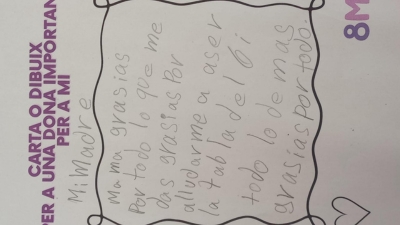 CARTA O DIBUIX
PER A UNA DONA IMPORTANT
PER A MI
Mi Madre
Mama grasias
Por todo lo que me
das grasias Por
alludarme a aser
la tabla del
todo lo de mas
grasias Por todo.
8M